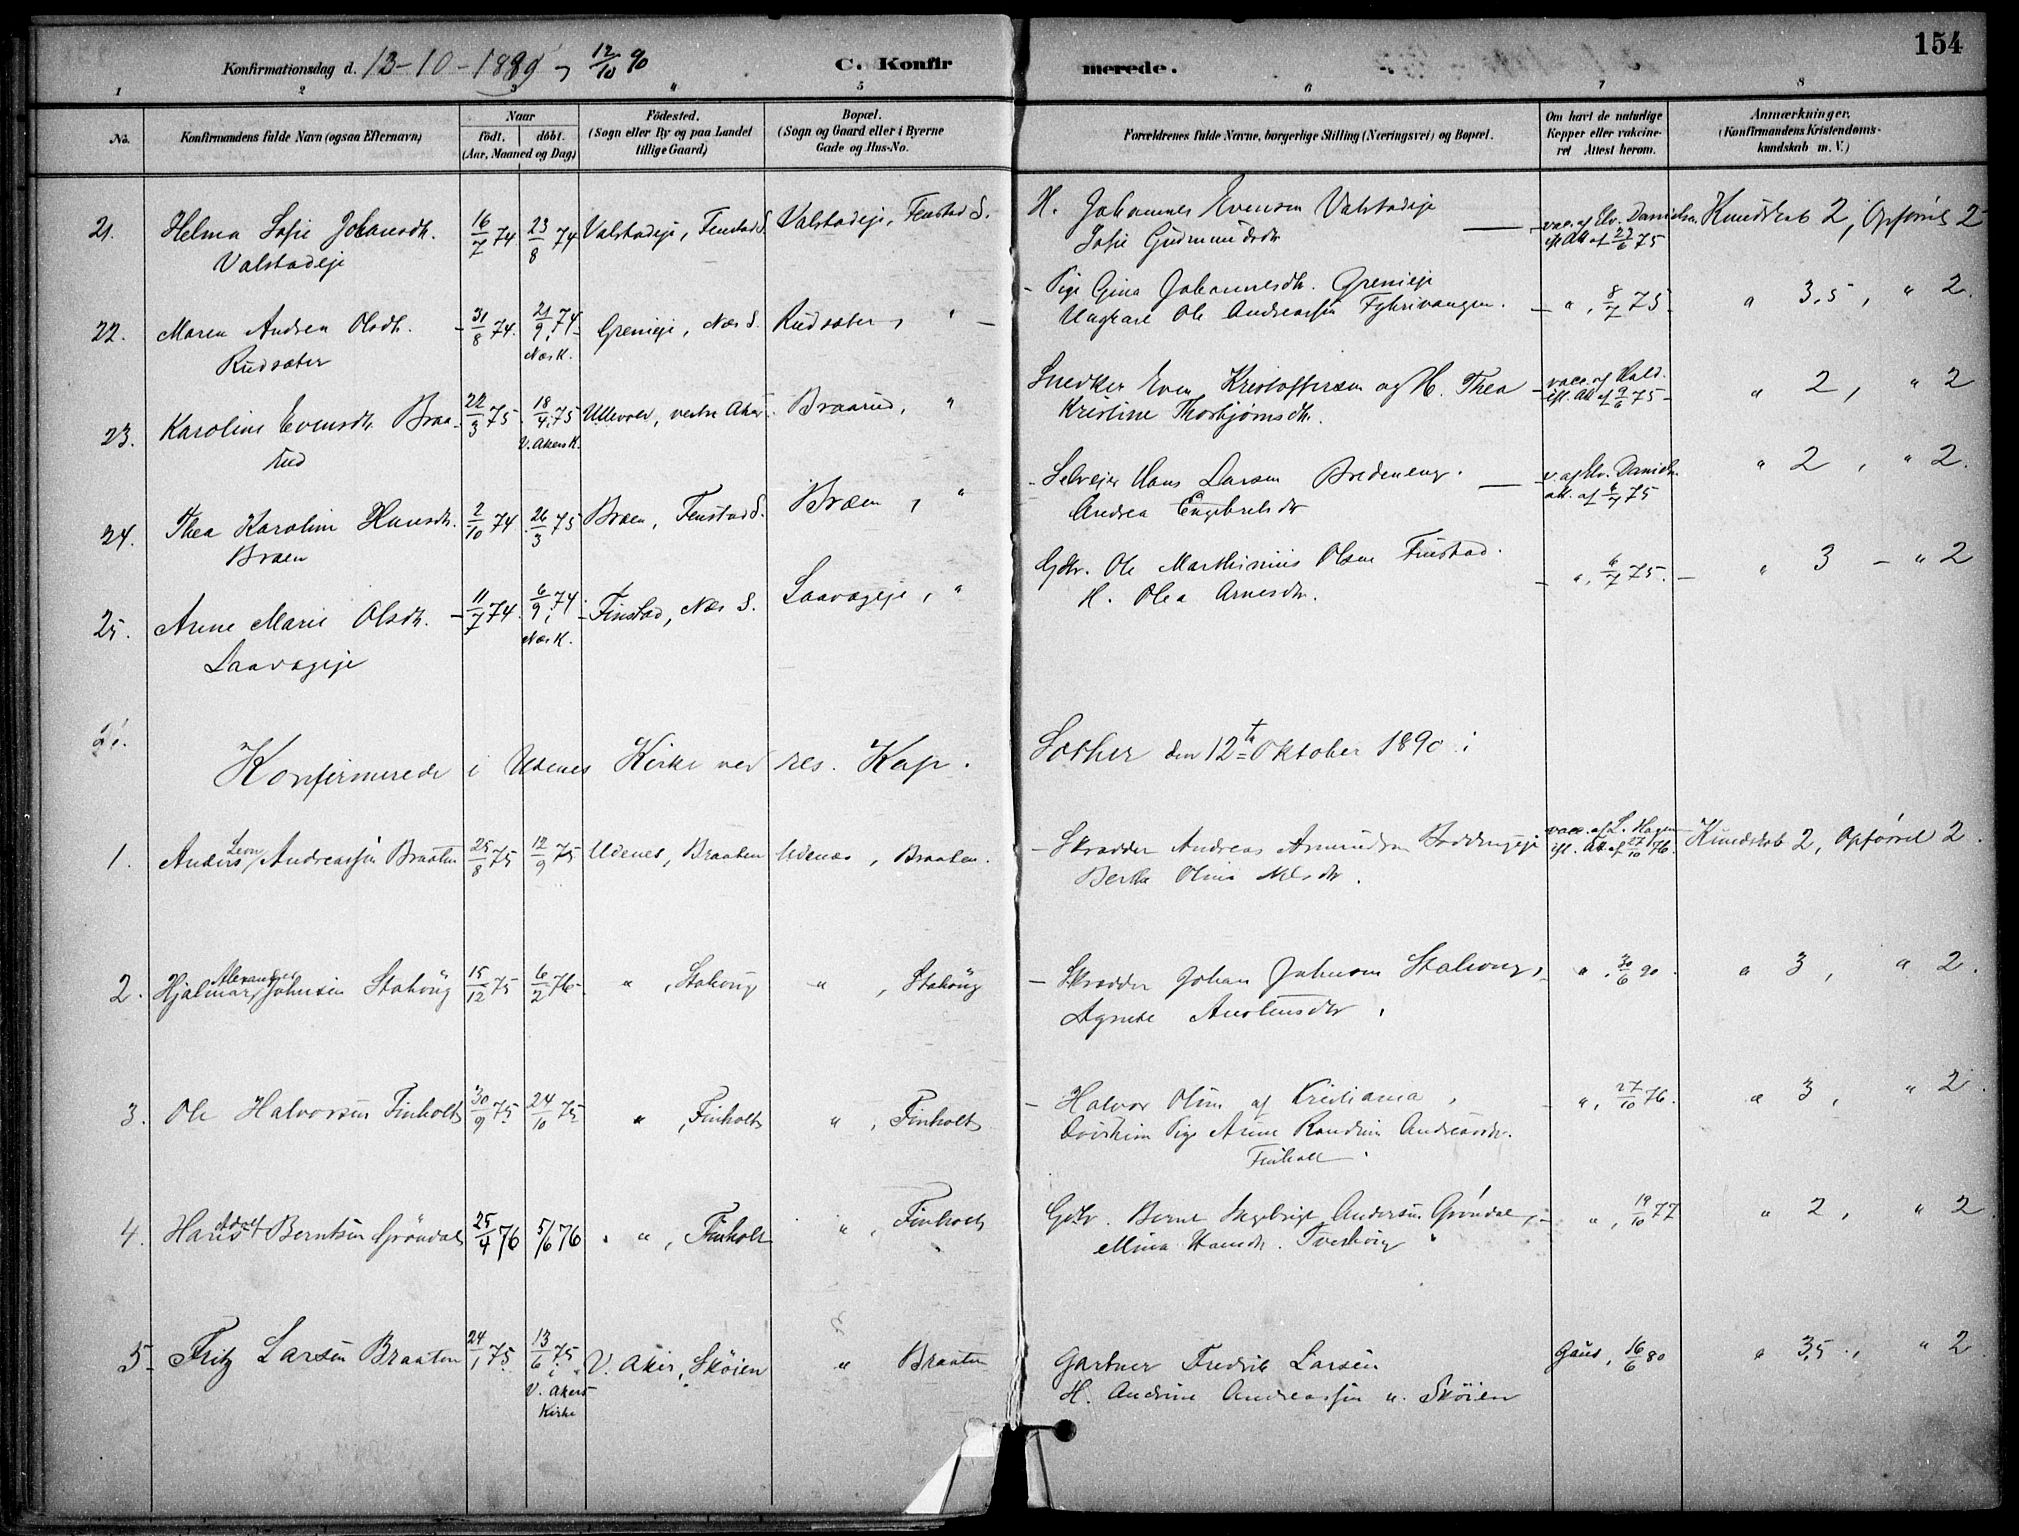 154
Konfirmationsdag d. 13-10-1889 12/10 90 C. Konfirmerede.
1 2 3 4 5 6 7 8
No. Konfirmandens fulde Navn (ogsaa Efternavn) Naar födt. döbt. (Aar, Maaned og Dag) Födested. (Sogn eller By og paa Landet tillige Gaard) Bopæl. (Sogn og Gaard eller i Byerne Gade og Hus-No. Forældrenes fulde Navne, borgerlige Stilling (Næringsvei) og Bopæl. Om havt de naturlige Kopper eller vakcineret Attest herom. Anmærkninger. (Konfirmandens Kristendomskundskab m. V.)
21. Helma Sofie Johansdtr. 16/7 74 23/8 74 Valstadeje, Fenstad S. Valstadeje, Fenstad S. H. Johannes Evensen Valstadeje vac. af Ev. Danielsen Kundskab 2, Opførsel 2
Valstadeje Sofie Gudmundsdtr ifl. Att. af 22/6 75
22. Maren Andrea Olsdtr. 31/8 74. 21/9 74 Grenieje, Næs S. Rudsæter, " Pige Gina Johannesdtr. Grenieje " , 8/7 75 " 3,5, " 2.
Rudsæter Næs K. Ungkarl Ole Andreassen Fyhrivangen.
23. Karoline Evensdtr. Braarud 22/3 75. 18/4 75 Ullevold, vestre Aker. Braarud, " Snedker Even Kristoffersen og H. Thea ifl. Att. af 9/6 75 " 2, " 2
V. Akers K. Kristine Thorbjørnsdtr.
24. Thea Karoline Hansdtr. 2/10 74 26/3 75 Bræen, Fenstad S. Bræen, " Selvejer Hans Larsen Bredeneng. v. af Ev. Danielsen " 2, " 2.
Bræen Andrea Engebretsdtr att. af 6/7 75
25. Anne Marie Olsdtr. 11/7 74. 6/9 74 Finstad, Næs S. Laavegeje, " Gdbr. Ole Marthinius Olsen Finstad. " , 6/7 75. " 3 - " 2
Laavegeje Næs K. H. Olea Arnesdtr.
Konfirmerede i Udenes Kirke ved res. Kap. Sother den 12te Oktober 1890:
1. Anders Leon Andreassen Braaten 25/8 75 12/9 75 Udenes, Braaten Udenæs, Braaten. Skrædder Andreas Amundsen vacc. af L. Hagen Kundskab 2, Opførsel 2.
Berthe Oline Nilsdtr. ifl. Att. af 27/10 76.
2. Hjalmar Alexander Johnsen Stahoug 15/12 75 6/2 76 " , Stahoug " , Stahoug Skrædder Johan Johnsen Stahoug, " , 30/6 90. " 3, " 2.
Agnethe
3. Ole Halvorsen Finholt 30/9 75 24/10 75 " , Finholt " , Finholt Halvor Olsen af Kristiania, " , 27/10 76. " 3, " 2.
Pige Anne Randine Andreasdtr.
Finholt.
4. Hans Adolf Berntsen Grøndal 25/4 76 5/6 76 " , Finholt " , Finholt Gdbr. Bernt Ingebrigt Andersen Grøndal, " , 19/10 77 " 2, " 2
Mina Hansdtr.
5. Fritz Larsen Braaten 24/1 75 13/6 75 V. Aker, Skøien " Braaten Gartner Fredrik Larsen Gaus, 16/6 80 " 3,5, " 2
i V. Akers Kirke H. Andrine Andreassen u. Skøien